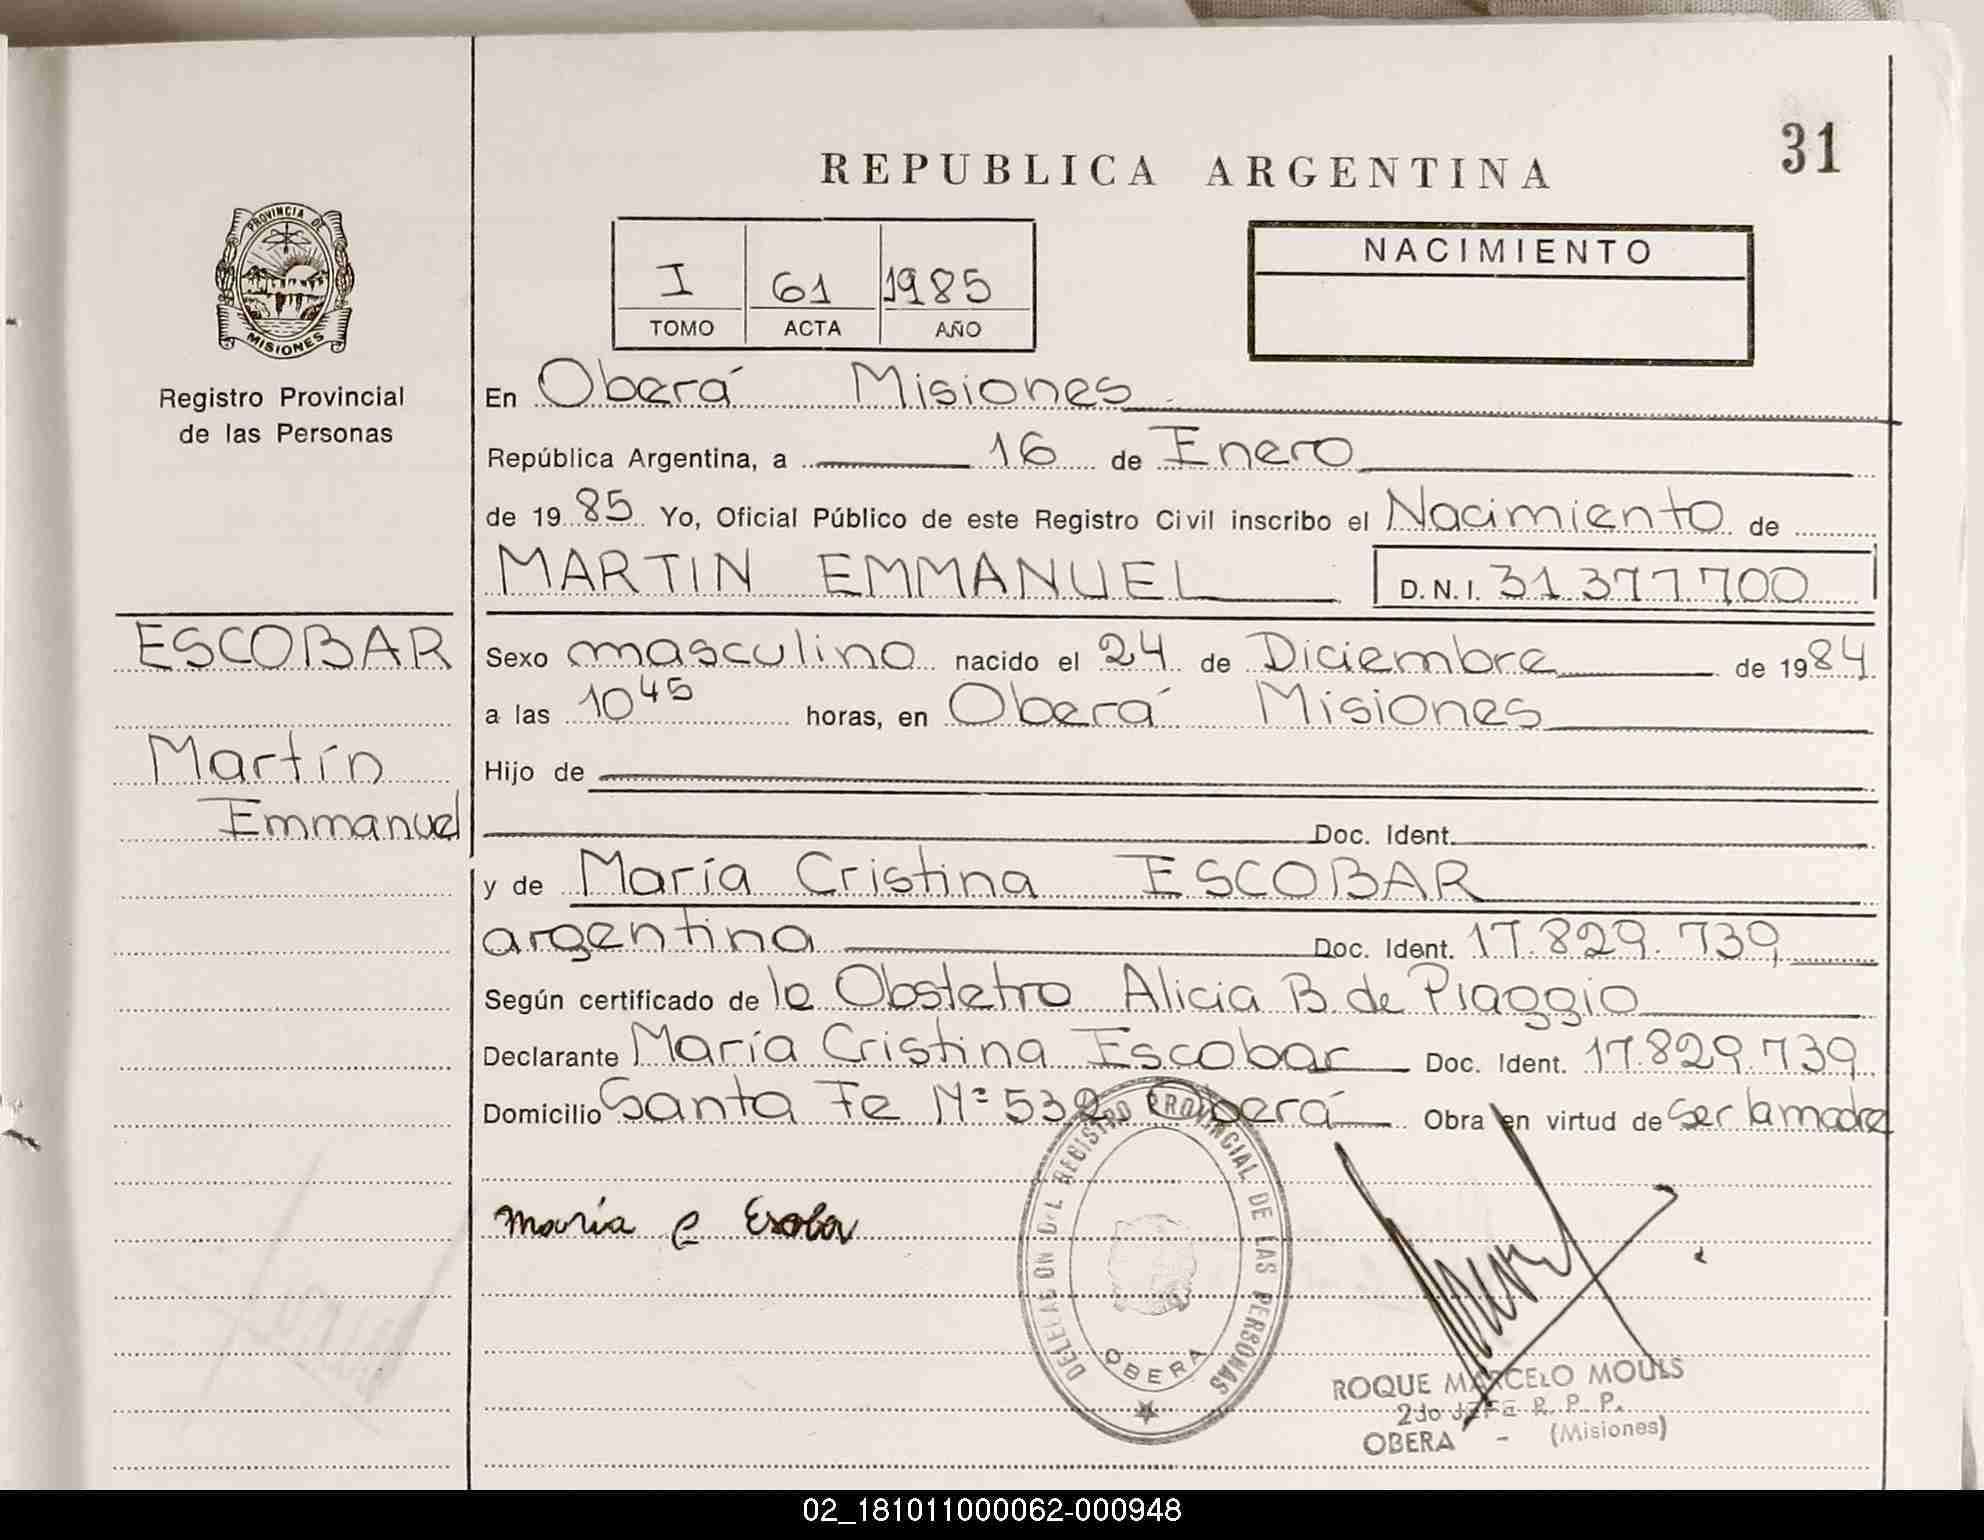 31
REPUBLICA ARGENTINA
PROVINCIA DE
MISIONES
Registro Provincial
de las Personas
I 61 1985
TOMO ACTA AÑO
NACIMIENTO
En Oberá Misiones
República Argentina, a 16 de Enero
de 1985 Yo, Oficial Público de este Registro Civil inscribo el Nacimiento de
MARTIN EMMANUEL D.N.I. 31.377.700
ESCOBAR
Martín
Emmanuel
Sexo masculino nacido el 24 de Diciembre de 1984
a las 10 45 horas, en Oberá Misiones
Hijo de
Doc. Ident.
y de María Cristina ESCOBAR
argentina Doc. Ident. 17.829.739
Según certificado de la Obstetra Alicia B. de Piaggio
Declarante María Cristina Escobar Doc. Ident. 17.829.739
Domicilio Santa Fe Nº 532 Oberá Obra en virtud de ser la madre
María C Escobar
DELEGACION DEL REGISTRO PROVINCIAL DE LAS PERSONAS
OBERA
ROQUE MARCELO MOULS
2do JEFE R. P. P.
OBERA - (Misiones)
02_181011000062-000948